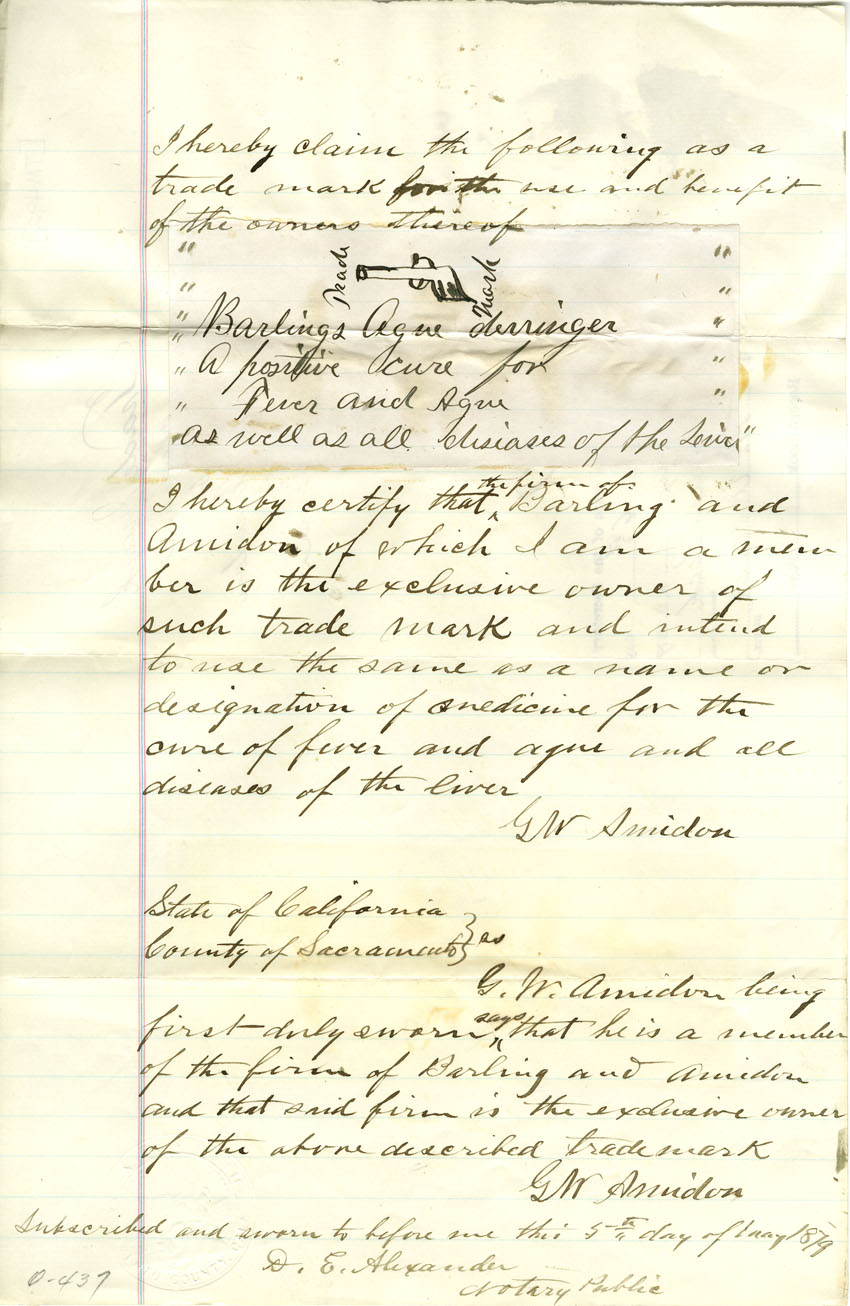 I hereby claim the following as a
trade mark for the use and benefit
of the owners thereof
" Trade Mark "
" "
" Barlings Ague derringer "
" A positive cure for "
" Fever and Ague "
"as well as all diseases of the Liver"
the firm of
I hereby certify that ‸ Barling and
Amidon of which I am a mem
ber is the exclusive owner of
such trade mark and intend
to use the same as a name or
designation of medicine for the
cure of fever and ague and all
diseases of the liver
GW Amidon
State of California
County of Sacramento } ss
G. W. Amidon being
says
first duly sworn ‸ that he is a member
of the firm of Barling and Amidon
and that said firm is the exclusive owner
of the above described trade mark
GW Amidon
Subscribed and sworn to before me this 5th day of May 1879
D. E. Alexander
Notary Public
0-437